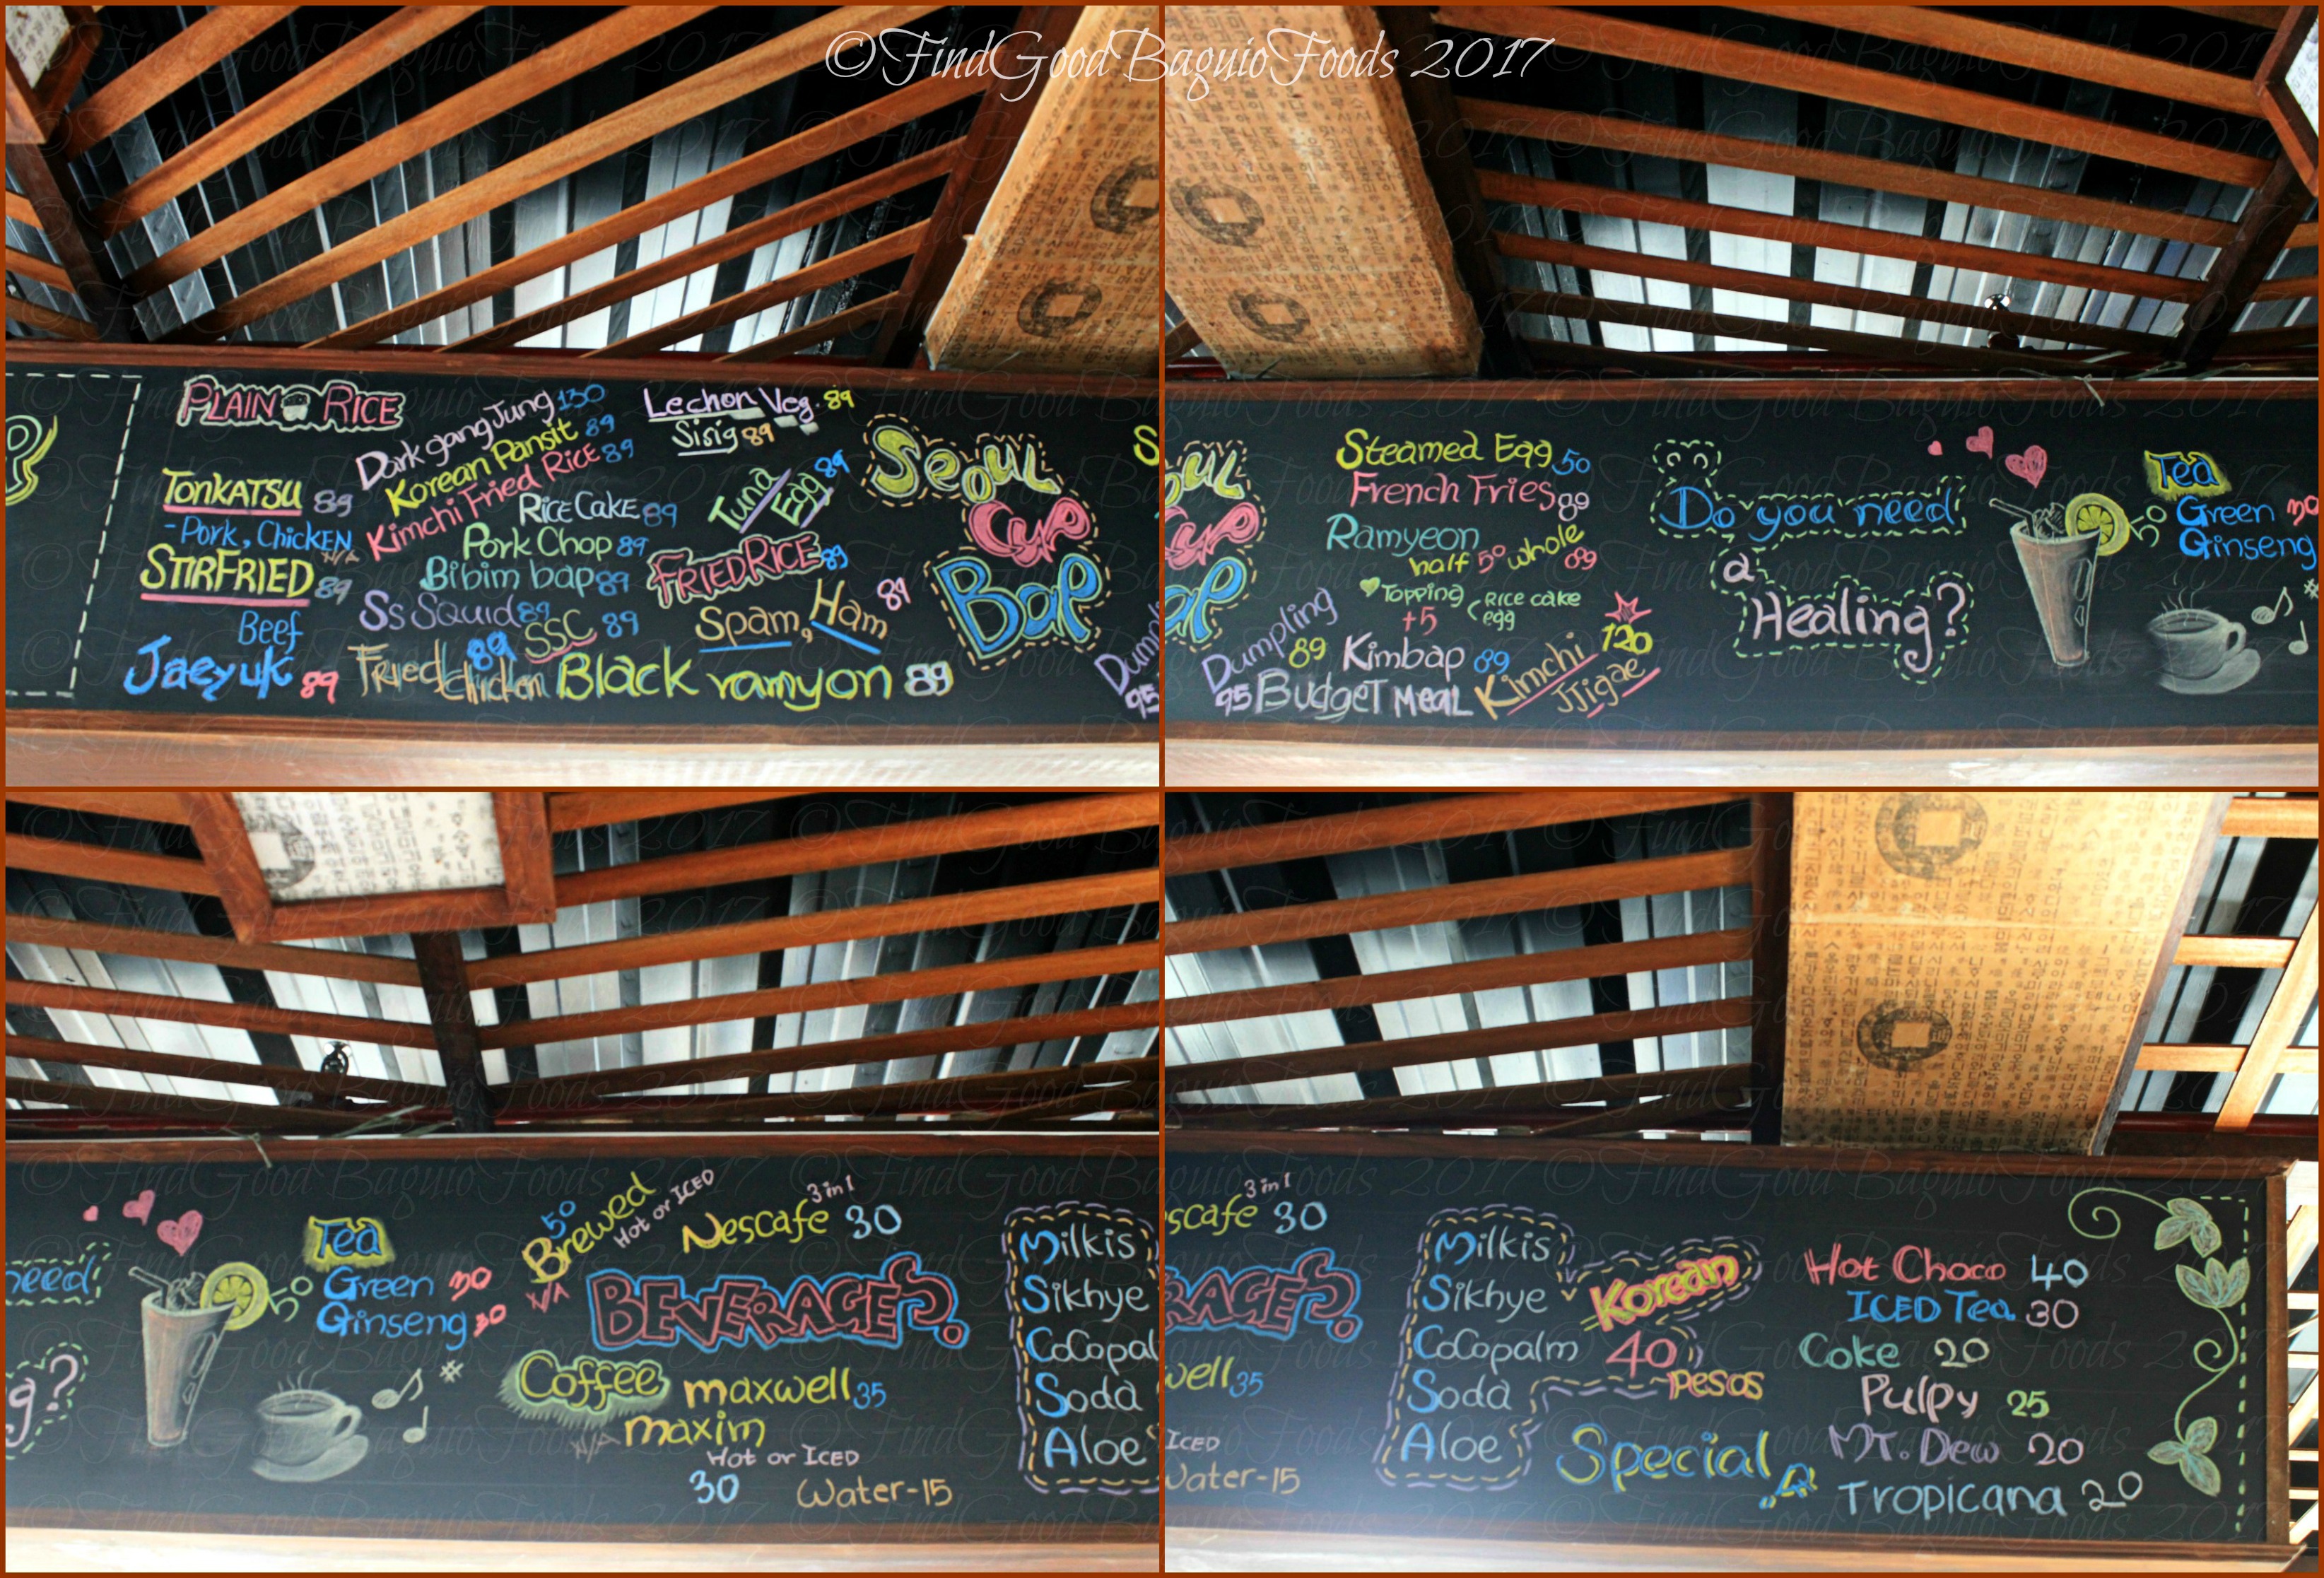 ©FindGoodBaguioFoods 2017
PLAIN RICE
TONKATSU 89
- Pork, CHICKEN
N/A
STIRFRIED 89
Beef
Jaeyuk 89
Dark gang Jung 130
Korean Pansit 89
Kimchi Fried RICE 89
RICE CAKE 89
Pork Chop 89
Bibim bap 89
Ss Squid 89
SSC 89
Fried chicken 89
Black ramyon 89
Lechon Veg. 89
Sisig 89
Tuna/Egg 89
FRIED RICE 89
Spam, Ham 89
Seoul
Cup
Bap
Steamed Egg 50
French Fries 89
Ramyeon
half 50 whole 89
Topping +5
Rice cake
egg
Dumpling 89
Kimbap 89
95 BudgeT MEAL
Kimchi JJigae 120
Do you need
a
Healing?
50
Tea
Green 30
Ginseng
need
g?
50
Tea
Green 30
Ginseng 30
50
Brewed
Hot or ICED
N/A
Nescafe 3 in 1 30
BEVERAGES.
Coffee
maxwell 35
N/A maxim
Hot or ICED
30
Water-15
Milkis
Sikhye
CoCopal
Soda
Aloe
scafe 3 in 1 30
RAGES.
well 35
ICED
Water-15
Milkis
Sikhye
CoCopalm
Soda
Aloe
Korean
40
pesos
Special
Hot Choco 40
ICED Tea 30
Coke 20
Pulpy 25
MT. Dew 20
Tropicana 20